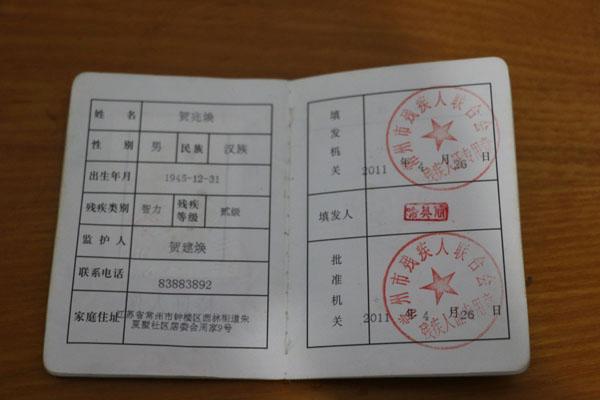 姓 名 贺建焕
性 别 男 民族 汉族
出生年月 1945-12-31
残疾类别 智力 残疾等级 贰级
监 护 人 贺建焕
联系电话 83883892
家庭住址 江苏省常州市钟楼区西林街道朱
夏墅社区居委会周家9号
填发机关
常州市残疾人联合会
残疾人证专用章
2011 年 4 月 26 日
填发人
批准机关
常州市残疾人联合会
残疾人证专用章
2011 年 4 月 26 日